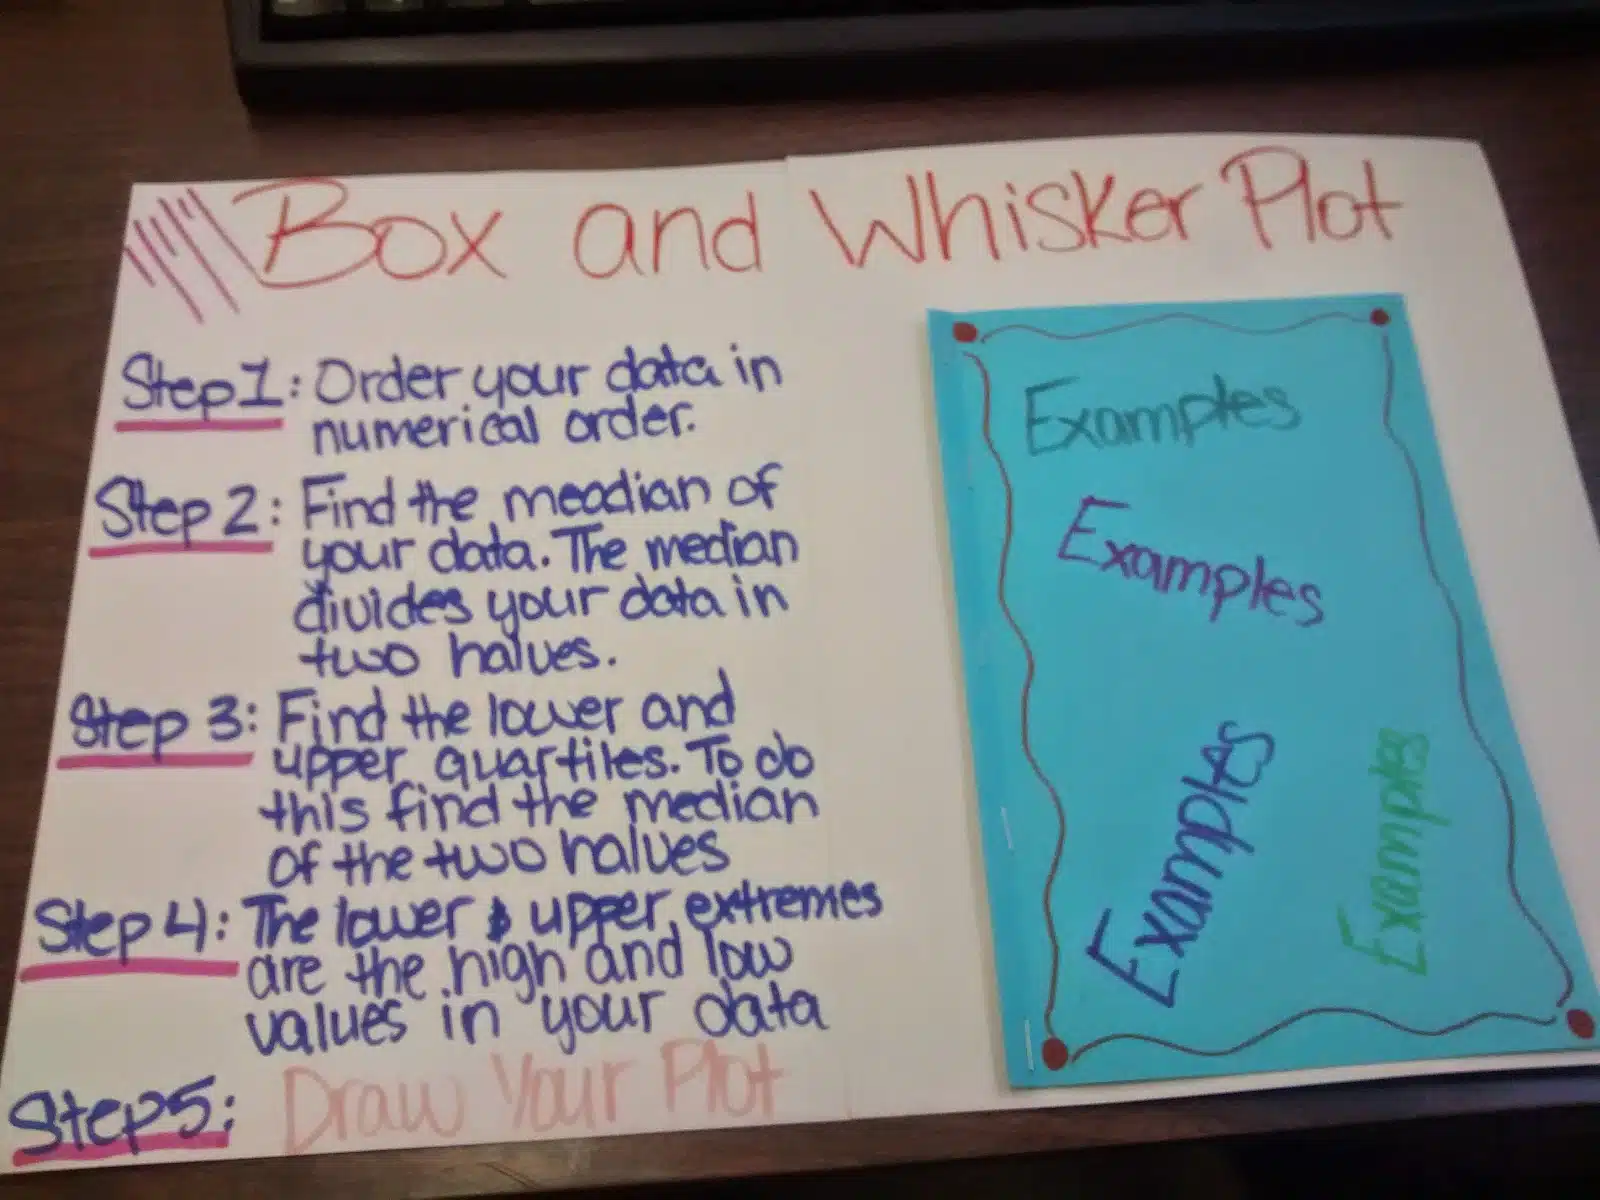 Box and Whisker Plot
Step 1: Order your data in
numerical order.
Step 2: Find the meadian of
your data. The median
divides your data in
two halves.
Step 3: Find the lower and
upper quartiles. To do
this find the median
of the two halves
Step 4: The lower & upper extremes
are the high and low
values in your data
Step 5: Draw Your Plot
Examples
Examples
Examples
Examples